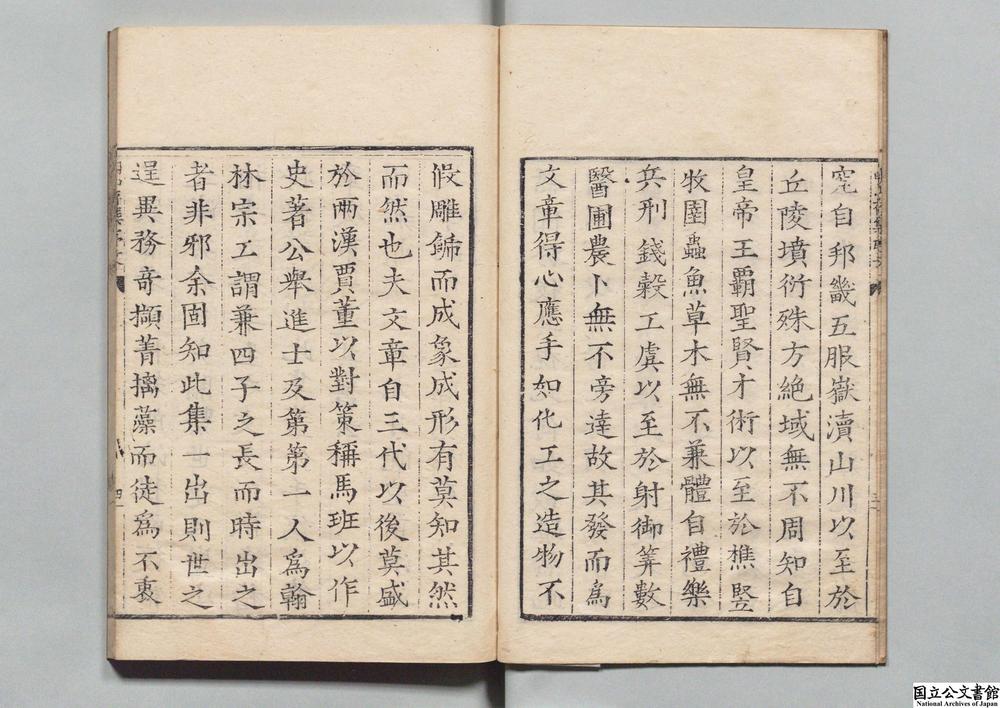 究自邦畿五服嶽瀆山川以至於
丘陵墳衍殊方絶域無不周知自
皇帝王覇聖賢才術以至於樵竪
牧圉蟲魚草木無不兼體自禮樂
兵刑錢穀工虞以至於射御筭數
醫圃農卜無不旁達故其發而爲
文章得心應手如化工之造物不
假雕餙而成象成形有莫知其然
而然也夫文章自三代以後莫盛
於兩漢賈董以對策稱馬班以作
史著公舉進士及第第一人爲翰
林宗工謂兼四子之長而時出之
者非邪余固知此集一出則世之
逞異務奇擷菁摛藻而徒爲不衷
三
四
国立公文書館
National Archives of Japan